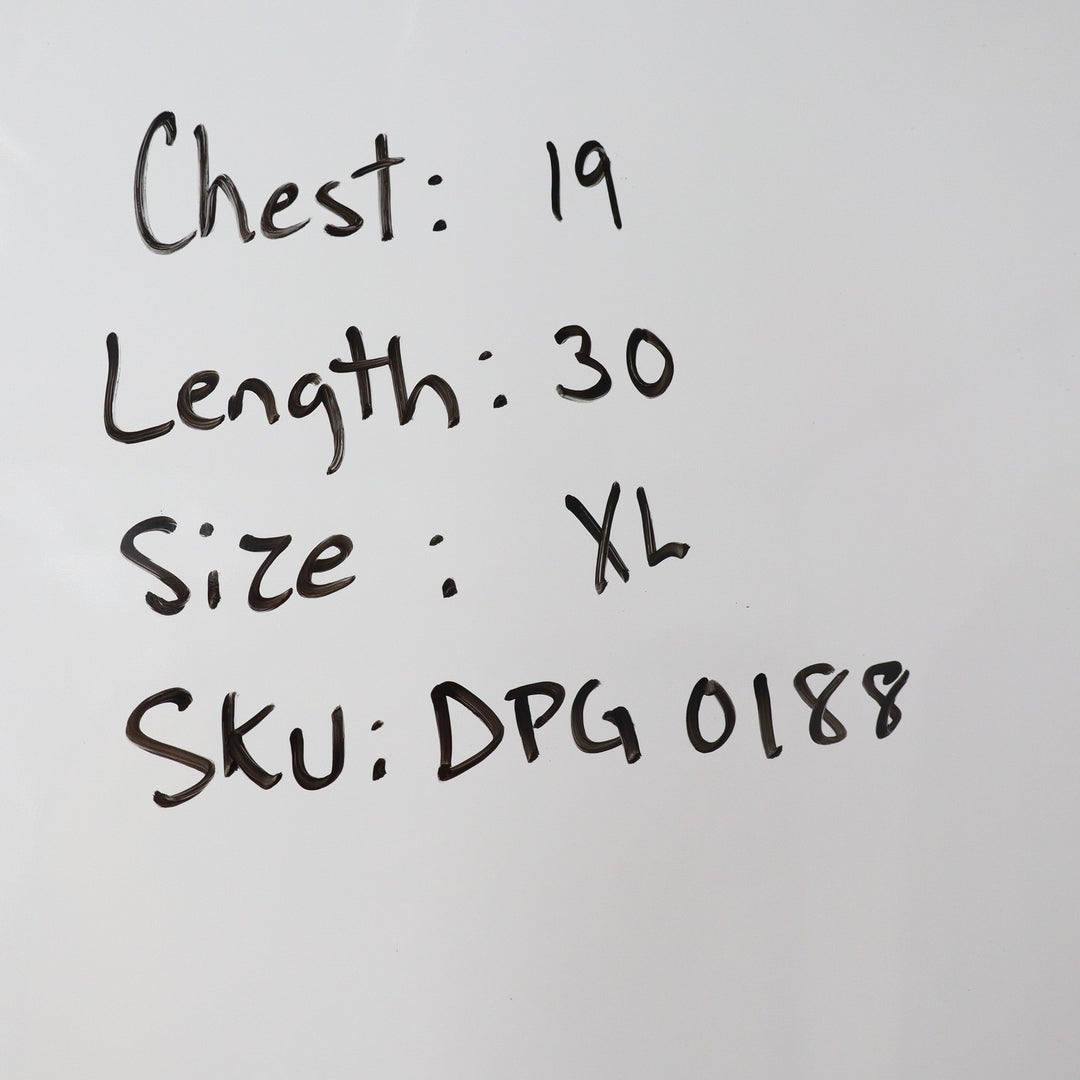 Chest: 19
Length: 30
Size: XL
SKU: DPG 0188